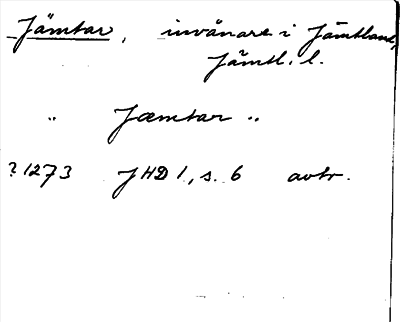 Jämtar, invånare i Jämtland,
Jämtl. l.
" Jæmtar "
? 1273 JHD 1, s. 6 avtr.